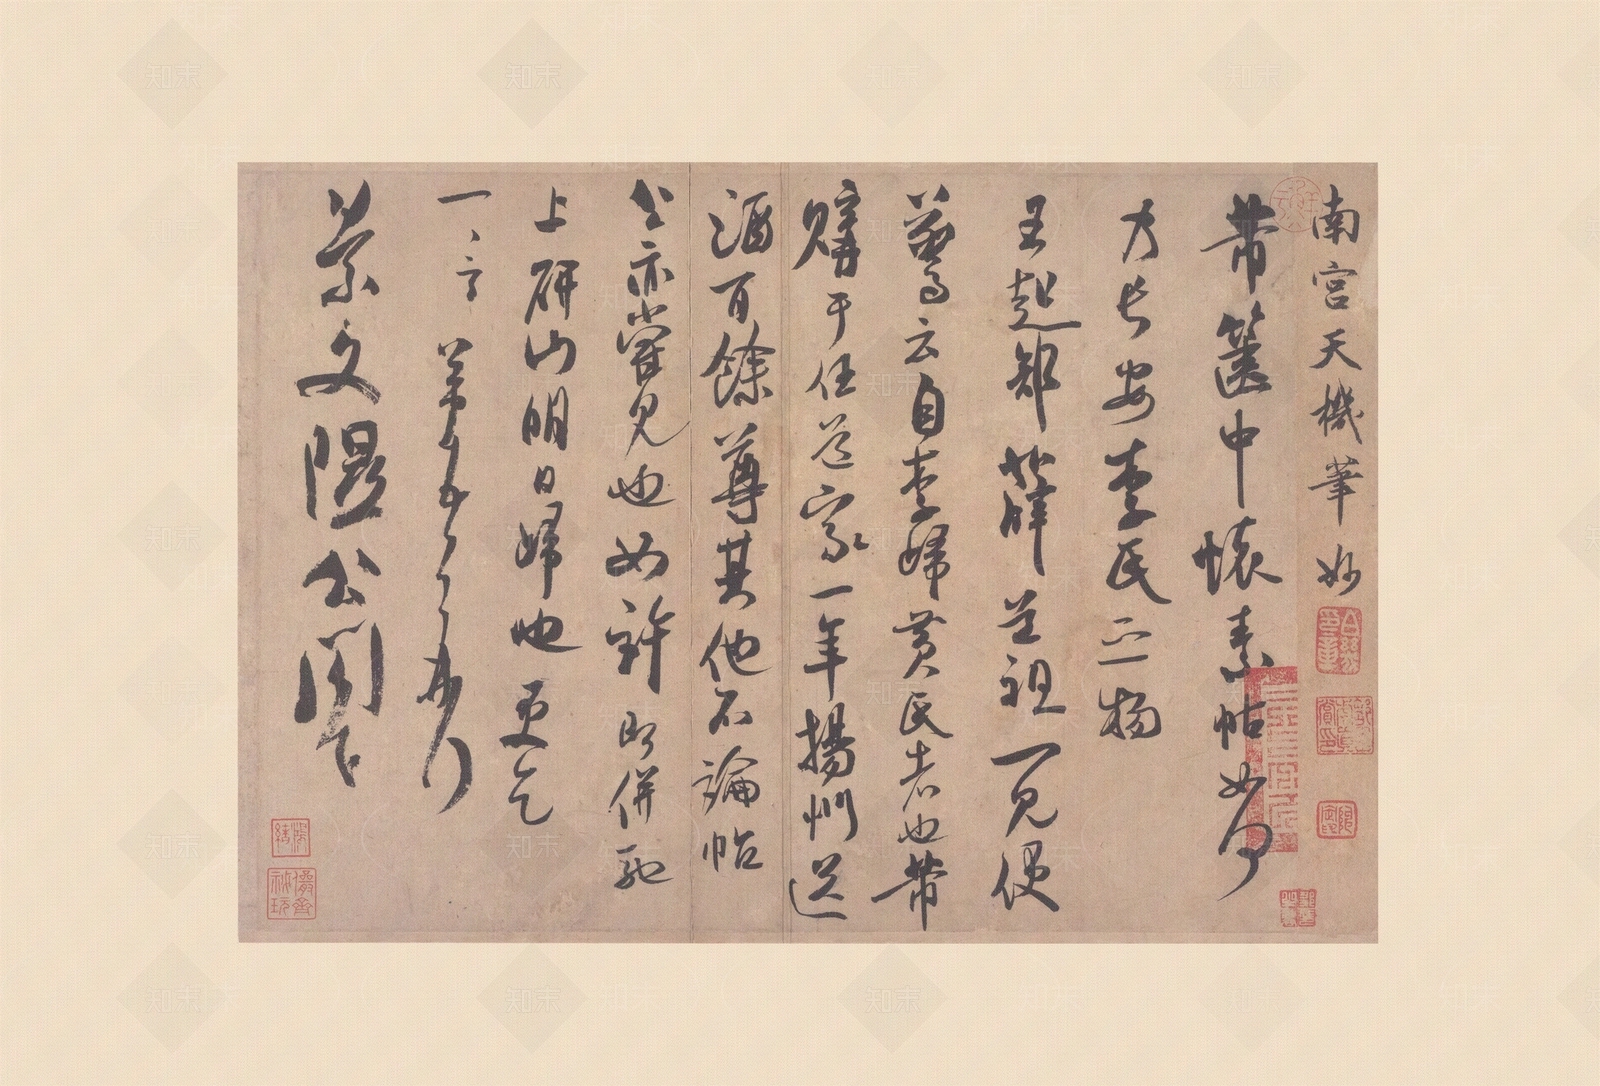 南宮天機筆妙
芾篋中懷素帖如何
乃長安李氏之物
王起部薛道祖一見便
驚云自李歸黃氏者也芾
購于任道家一年揚州送
酒百餘尊其他不論帖
公亦嘗見也如許即併馳
上研山明日歸也更乞
一言芾頓首再拜
景文隰公閣下
知末